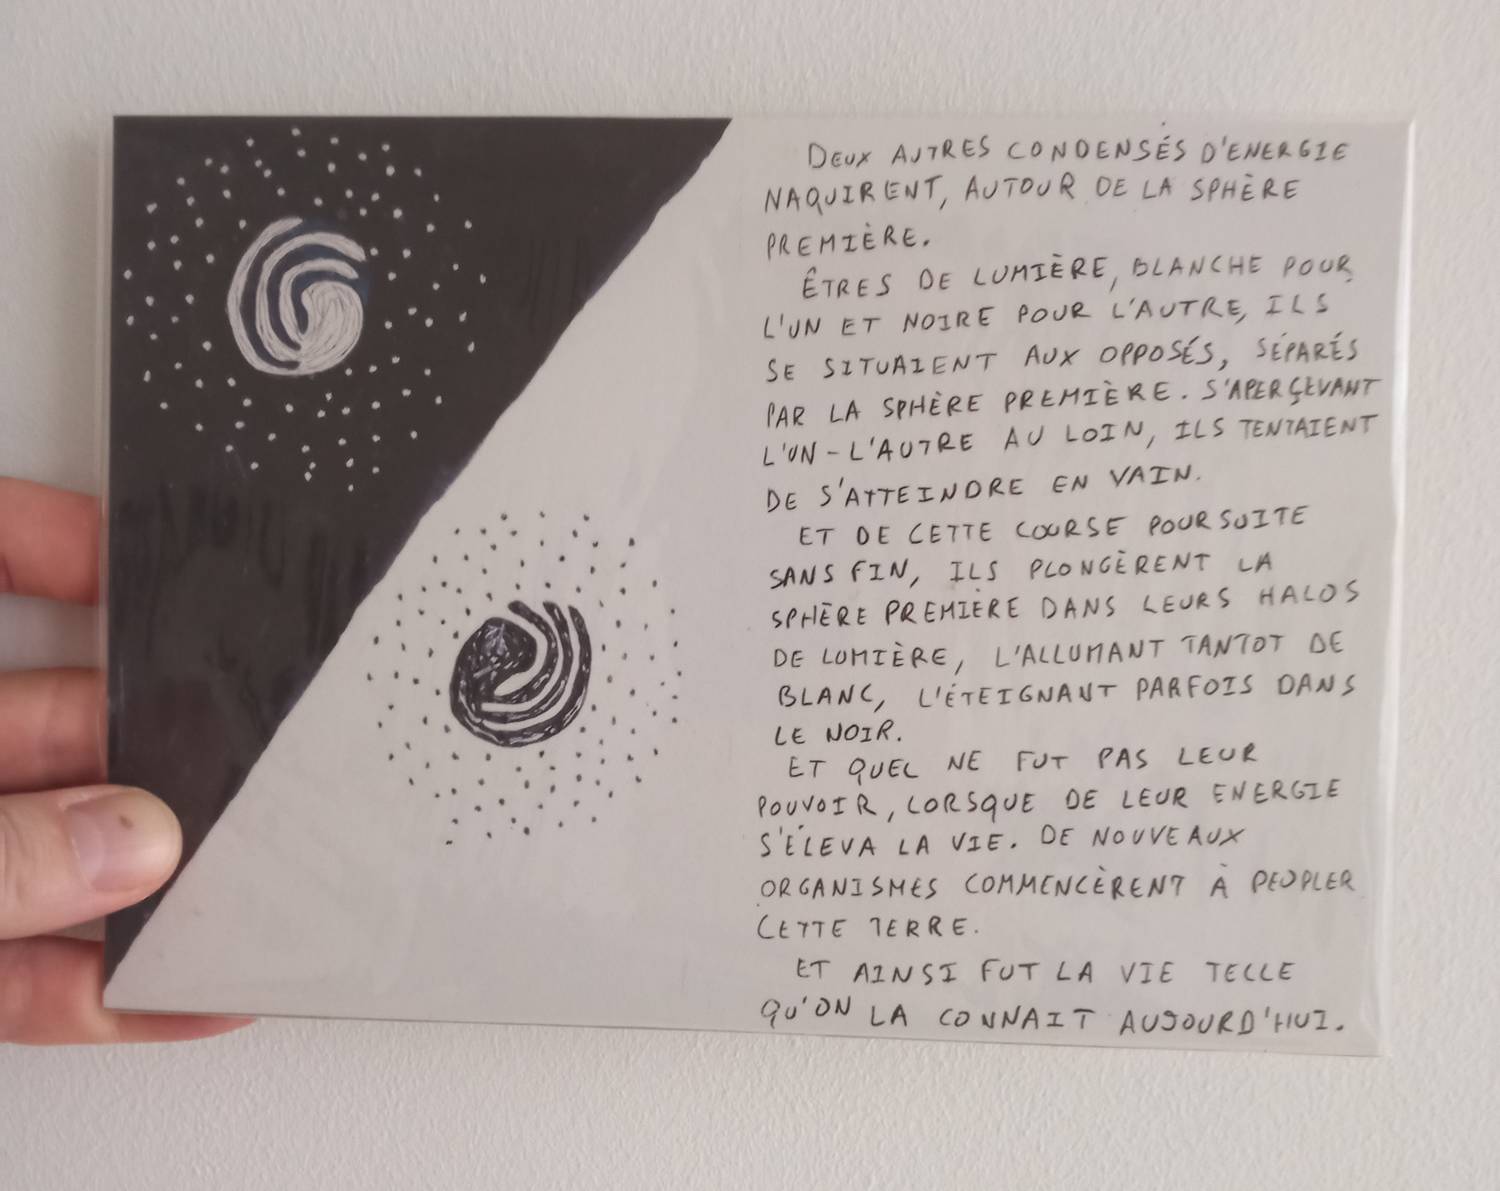 DEUX AUTRES CONDENSÉS D'ENERGIE
NAQUIRENT, AUTOUR DE LA SPHÈRE
PREMIÈRE.
ÊTRES DE LUMIÈRE, BLANCHE POUR
L'UN ET NOIRE POUR L'AUTRE, ILS
SE SITUAIENT AUX OPPOSÉS, SÉPARÉS
PAR LA SPHÈRE PREMIÈRE. S'APERÇEVANT
L'UN-L'AUTRE AU LOIN, ILS TENTAIENT
DE S'ATTEINDRE EN VAIN.
ET DE CETTE COURSE POURSUITE
SANS FIN, ILS PLONGÈRENT LA
SPHÈRE PREMIÈRE DANS LEURS HALOS
DE LUMIÈRE, L'ALLUMANT TANTOT DE
BLANC, L'ÉTEIGNANT PARFOIS DANS
LE NOIR.
ET QUEL NE FUT PAS LEUR
POUVOIR, LORSQUE DE LEUR ENERGIE
S'ÉLEVA LA VIE. DE NOUVEAUX
ORGANISMES COMMENCÈRENT À PEUPLER
CETTE TERRE.
ET AINSI FUT LA VIE TELLE
QU'ON LA CONNAIT AUJOURD'HUI.